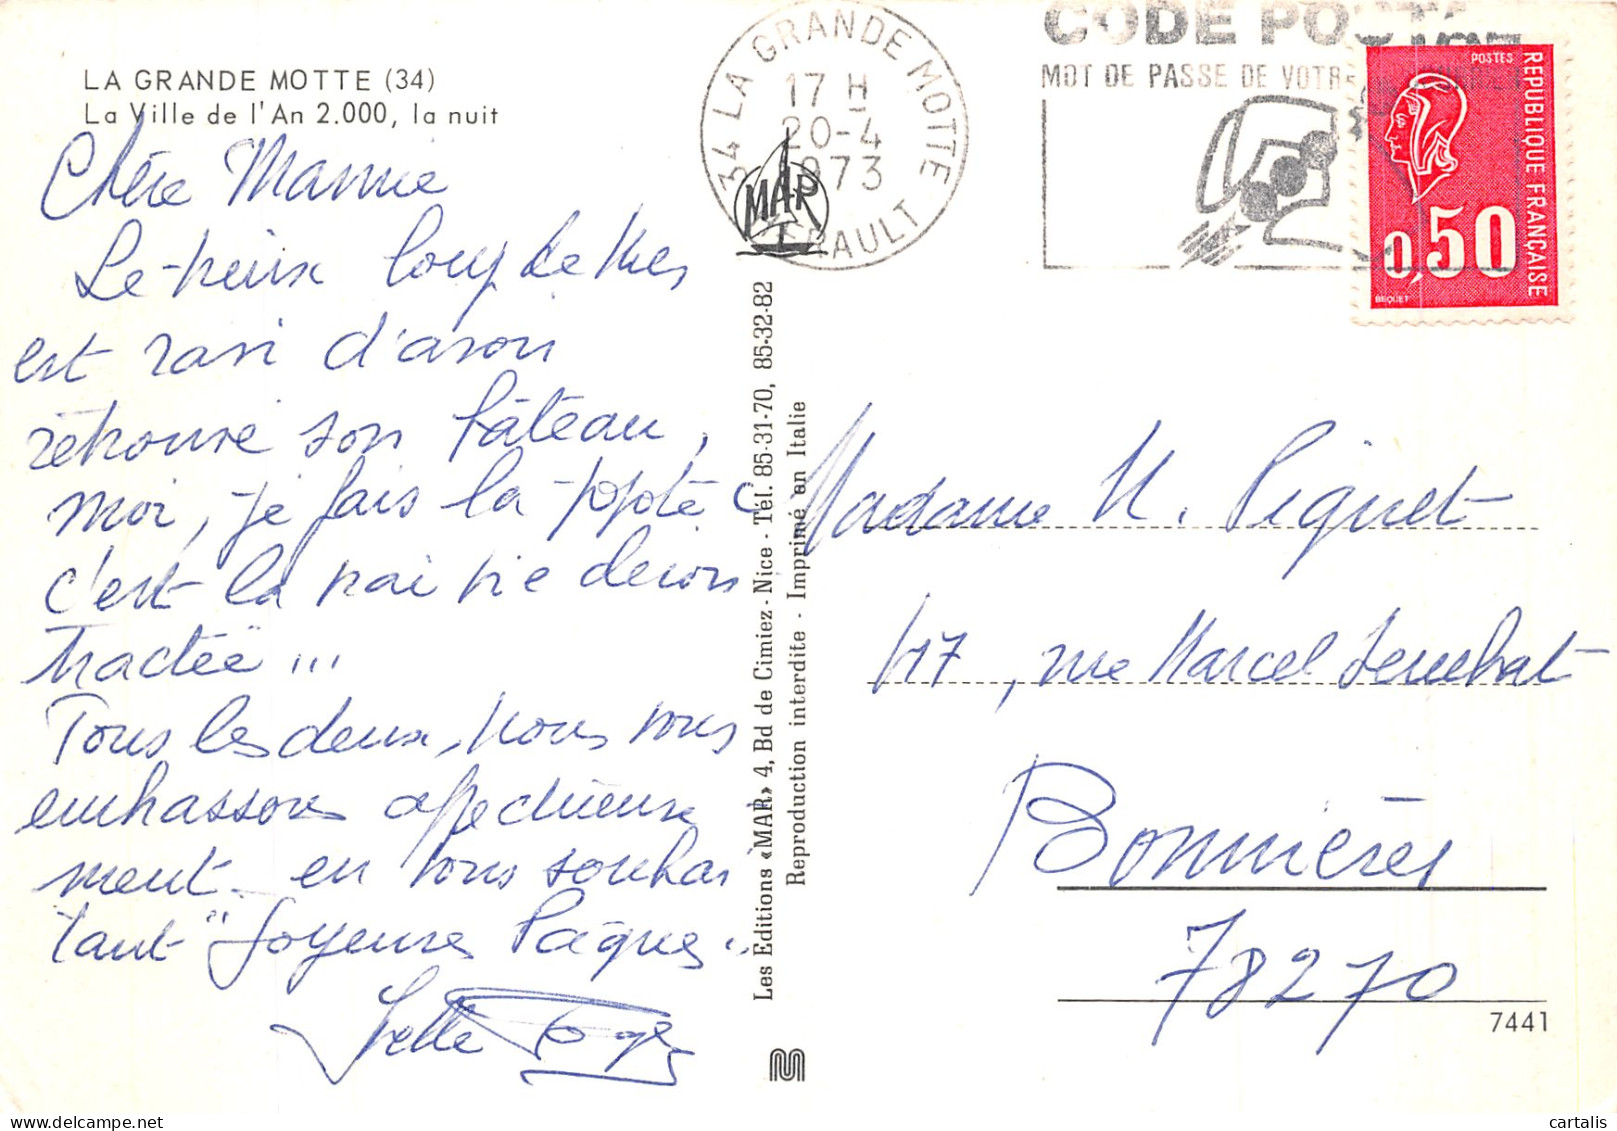 LA GRANDE MOTTE (34)
La Ville de l'An 2.000, la nuit
Chère Mamie
Le vieux loup de Mer
est ravi d'avoir
retrouvé son bâteau,
moi, je fais la popote
c'est la vraie vie
tractée" ...
Tous les deux, nous vous
embrassons affectueuse
ment en vous souhai
tant "Joyeuses Pâques"
34 LA GRANDE MOTTE
17 H
20-4
1973
HERAULT
MAR
CODE POSTAL
MOT DE PASSE DE VOTRE
POSTES
REPUBLIQUE FRANÇAISE
0,50
BEQUET
Les Editions «MAR» 4, Bd de Cimiez - Nice - Tél. 85-31-70, 85-32-82
Reproduction interdite - Imprimé en Italie
Madame M. Piquet
117, rue Marcel Sembat
Bonnières
78270
7441